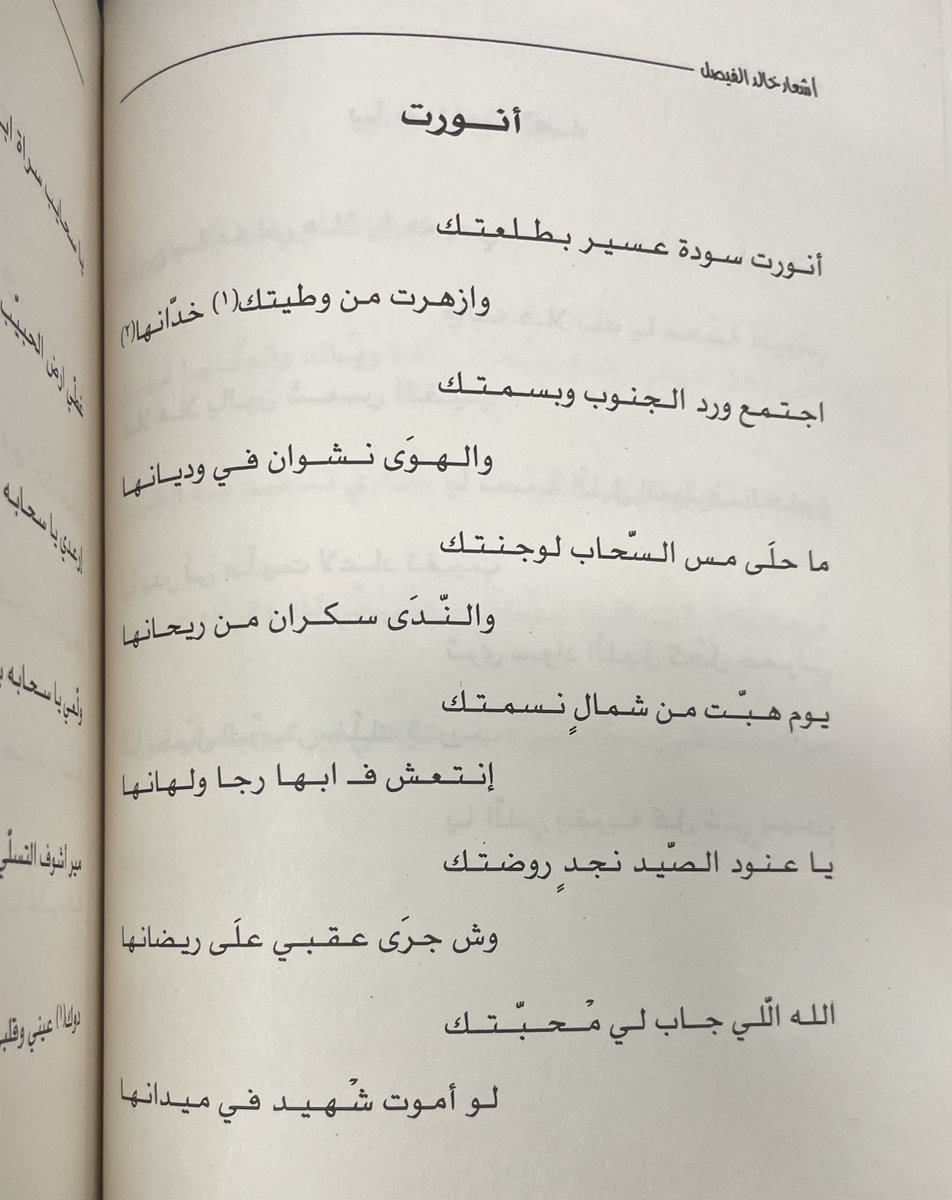 أشعار خالد الفيصل
أنورت
أنورت سودة عسير بطلعتك
وازهرت من وطيتك(١) خدّانها(٢)
اجتمع ورد الجنوب وبسمتك
والهوَى نشوان في وديانها
ما حلَى مس السّحاب لوجنتك
والنّدَى سكران من ريحانها
يوم هبّت من شمالٍ نسمتك
إنتعش فـ ابها رجا ولهانها
يا عنود الصّيد نجدٍ روضتك
وش جرَى عقبي علَى ريضانها
الله الّلي جاب لي مْحبّتك
لو أموت شْهيد في ميدانها
يا سحايب سراة
خطّي ارض الحبيّب
ارعدي يا سحابه
يا سحابه
مير أشوف التسلّي
دوك(١) عيني